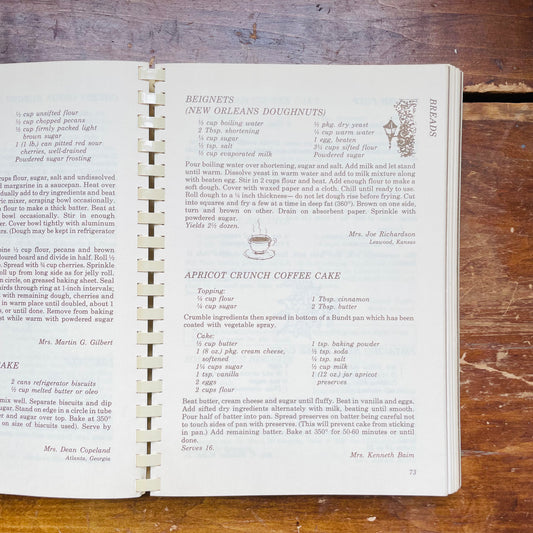 ½ cup unsifted flour
½ cup chopped pecans
½ cup firmly packed light
brown sugar
1 (1 lb.) can pitted red sour
cherries, well-drained
Powdered sugar frosting
cups flour, sugar, salt and undissolved
d margarine in a saucepan. Heat over
dually add to dry ingredients and beat
ric mixer, scraping bowl occasionally.
flour to make a thick batter. Beat at
bowl occasionally. Stir in enough
er. Cover bowl tightly with aluminum
rs. (Dough may be kept in refrigerator
ine ½ cup flour, pecans and brown
floured board and divide in half. Roll ½
. Spread with ¾ cup cherries. Sprinkle
oll up from long side as for jelly roll.
n circle, on greased baking sheet. Seal
irds through ring at 1-inch intervals;
with remaining dough, cherries and
in warm place until doubled, about 1
, or until done. Remove from baking
st while warm with powdered sugar
Mrs. Martin G. Gilbert
AKE
2 cans refrigerator biscuits
½ cup melted butter or oleo
mix well. Separate biscuits and dip
ugar. Stand on edge in a circle in tube
er and sugar over top. Bake at 350°
on size of biscuits used). Serve by
Mrs. Dean Copeland
Atlanta, Georgia
BREADS
BEIGNETS
(NEW ORLEANS DOUGHNUTS)
½ cup boiling water
2 Tbsp. shortening
¼ cup sugar
½ tsp. salt
½ cup evaporated milk
½ pkg. dry yeast
¼ cup warm water
1 egg, beaten
3¾ cups sifted flour
Powdered sugar
Pour boiling water over shortening, sugar and salt. Add milk and let stand
until warm. Dissolve yeast in warm water and add to milk mixture along
with beaten egg. Stir in 2 cups flour and beat. Add enough flour to make a
soft dough. Cover with waxed paper and a cloth. Chill until ready to use.
Roll dough to a ⅛ inch thickness— do not let dough rise before frying. Cut
into squares and fry a few at a time in deep fat (360°). Brown on one side,
turn and brown on other. Drain on absorbent paper. Sprinkle with
powdered sugar.
Yields 2½ dozen.
Mrs. Joe Richardson
Leawood, Kansas
APRICOT CRUNCH COFFEE CAKE
Topping:
¼ cup flour
¼ cup sugar
1 Tbsp. cinnamon
2 Tbsp. butter
Crumble ingredients then spread in bottom of a Bundt pan which has been
coated with vegetable spray.
Cake:
½ cup butter
1 (8 oz.) pkg. cream cheese,
softened
1¼ cups sugar
1 tsp. vanilla
2 eggs
2 cups flour
1 tsp. baking powder
½ tsp. soda
¼ tsp. salt
½ cup milk
1 (12 oz.) jar apricot
preserves
Beat butter, cream cheese and sugar until fluffy. Beat in vanilla and eggs.
Add sifted dry ingredients alternately with milk, beating until smooth.
Pour half of batter into pan. Spread preserves on batter being careful not
to touch sides of pan with preserves. (This will prevent cake from sticking
in pan.) Add remaining batter. Bake at 350° for 50-60 minutes or until
done.
Serves 16.
Mrs. Kenneth Baim
73